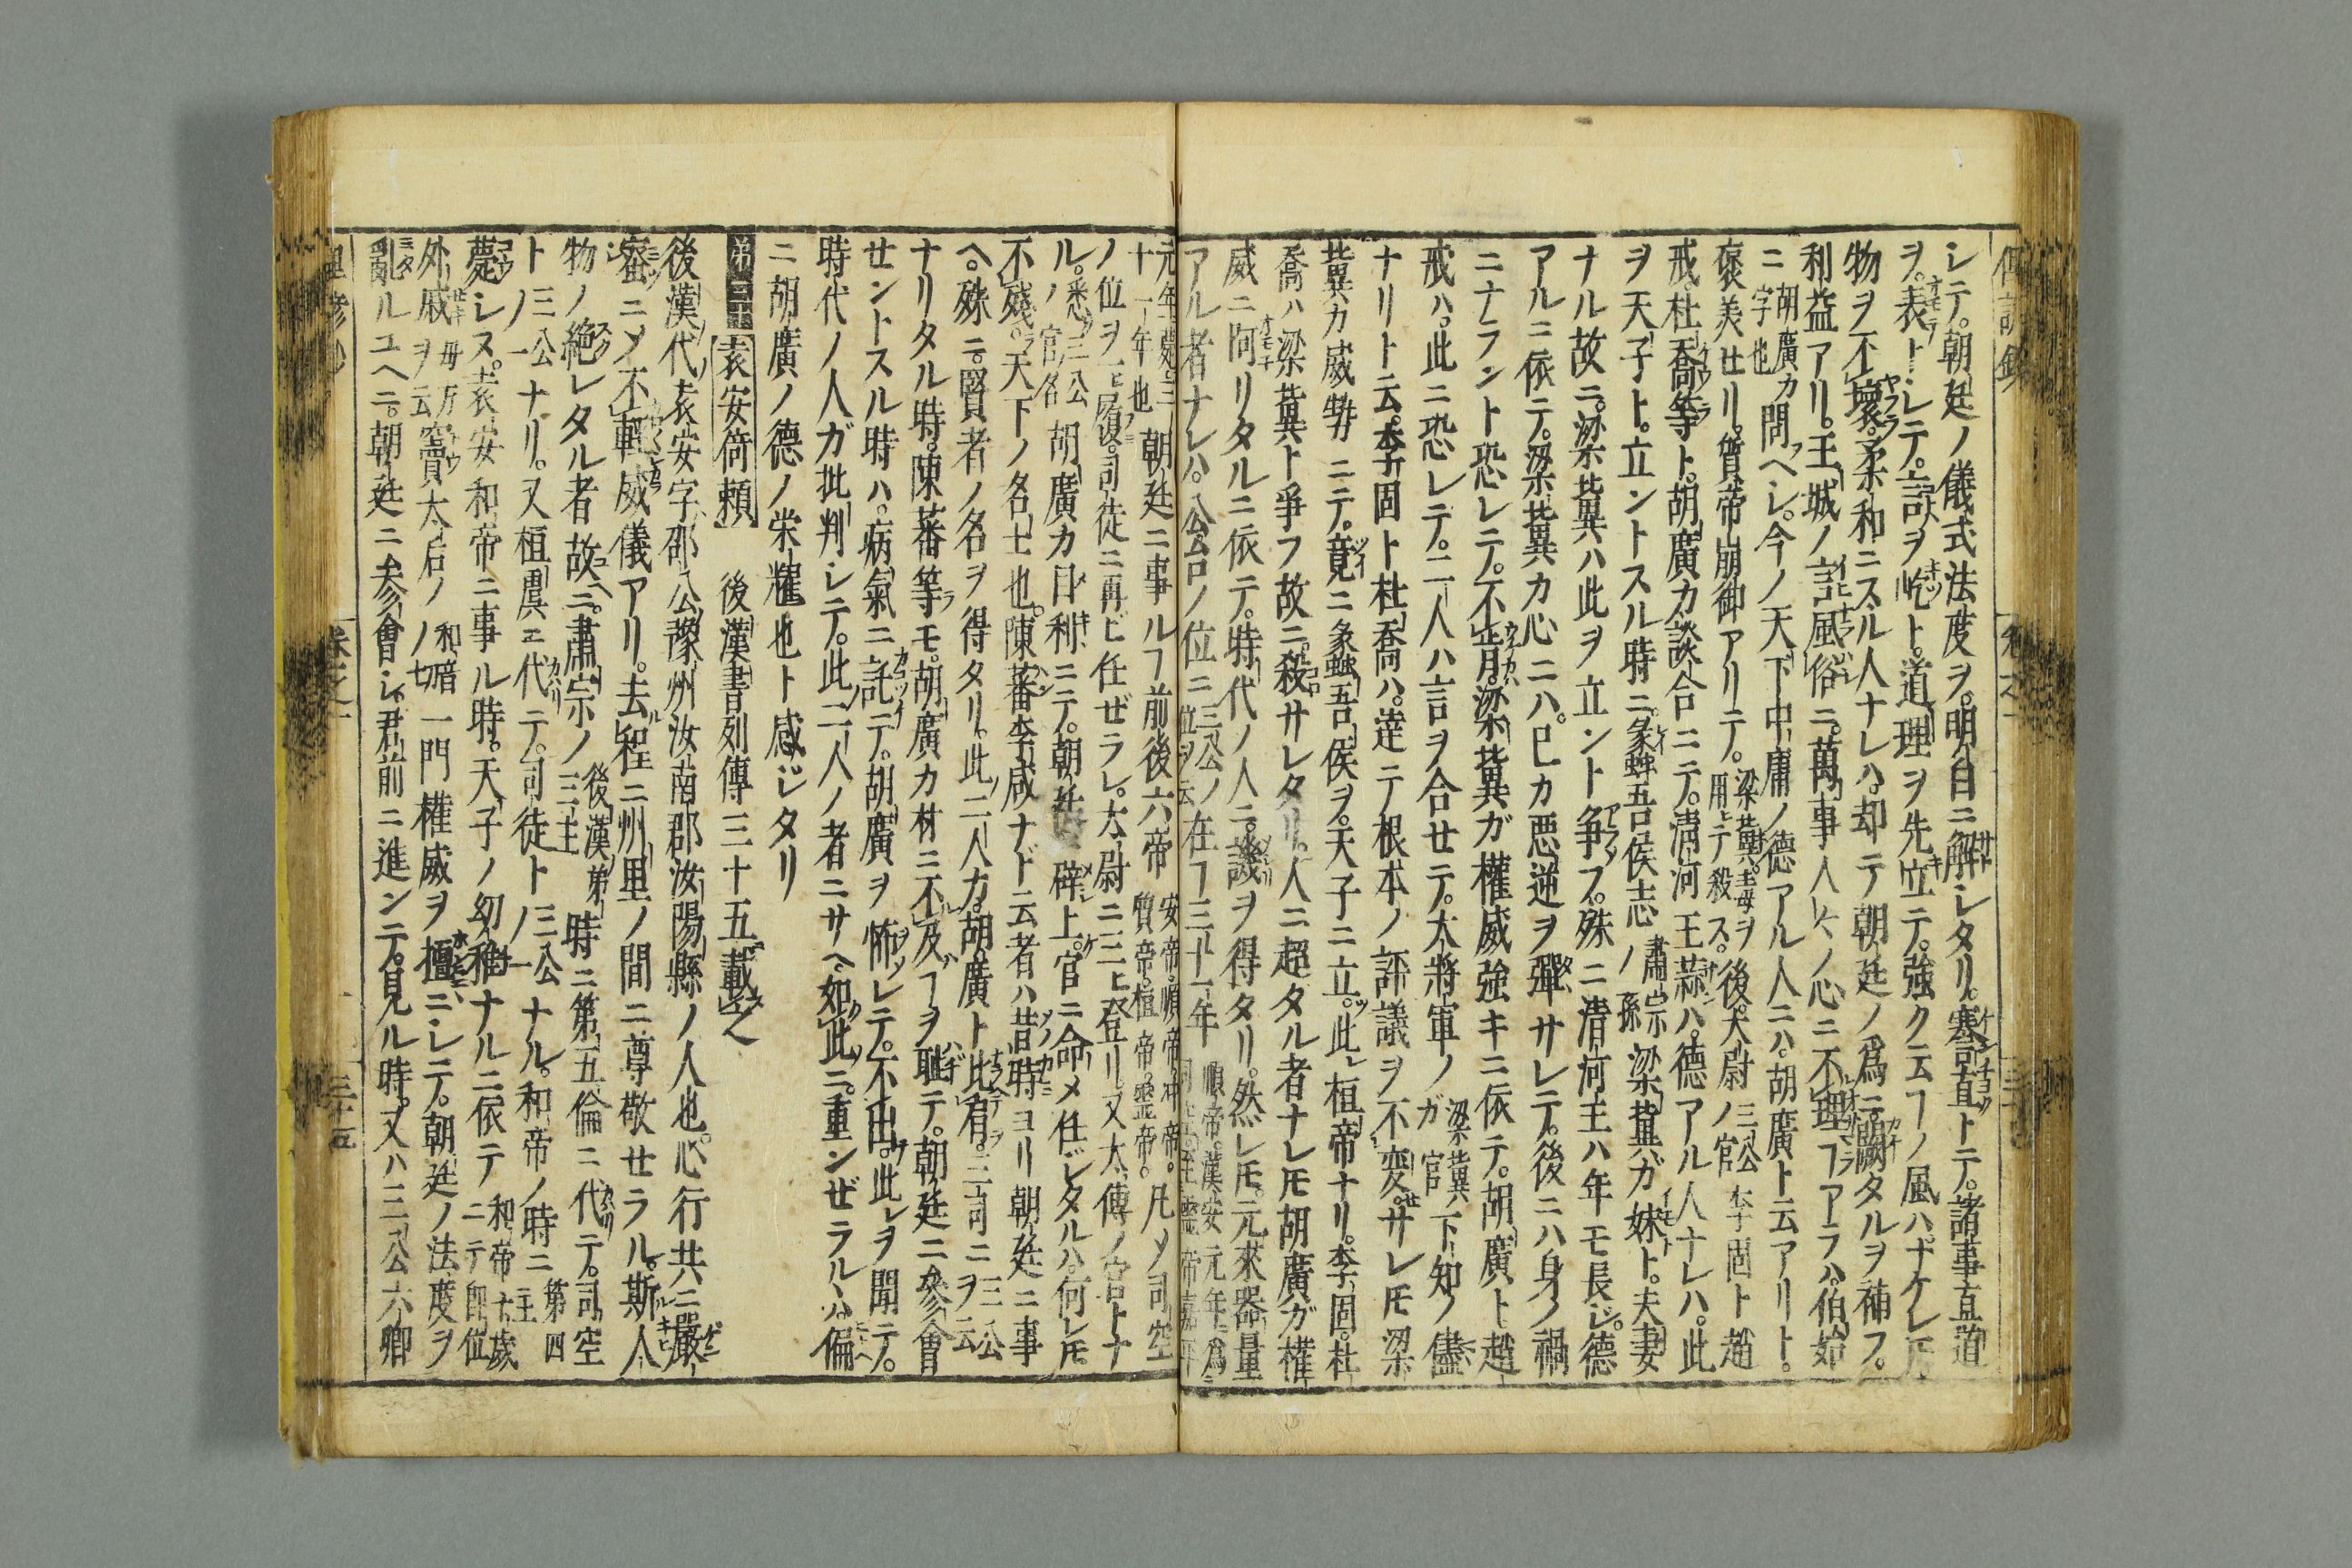 シテ。朝廷ノ儀式法度ヲ。明白ニ解シタリ。謇直トテ。諸事直道
ヲ。表トシテ。言ヲ屹ト。道理ヲ先立テ。強ク云フノ風ハ。ナケレ𪜈
物ヲ不壞。柔和ニスル人ナレハ。却テ朝廷ノ爲ニ闕タルヲ補フ。
利益アリ。王城ノ言風俗ニ。萬事人々ノ心ニ不理コアラハ。伯始
ニ 胡廣カ字也 問ヘシ。今ノ天下中庸ノ德アル人ニハ。胡廣ト云アリト。
褒美セリ。質帝崩御アリテ。梁冀。毒ヲ用ヒテ殺ス。後。大尉ノ 三公ノ官 李固ト趙
戒。杜喬等ト。胡廣カ談合ニテ。淸河王蒜ハ。德アル人ナレハ。此
ヲ天子ト。立ントスル時ニ。蠡吾侯志ノ 肅宗ノ孫 梁冀ガ妹ト。夫妻
ナル故ニ。梁冀ハ此ヲ立ント爭フ。殊ニ淸河王ハ年モ長ジ。德
アルニ依テ。梁冀カ心ニハ。已カ惡逆ヲ彈サレテ。後ニハ身ノ禍
ニナラント恐レテ。不肯。梁冀ガ權威強キニ依テ。胡廣ト趙
戒ハ。此ニ恐レテ。二人ハ言ヲ合セテ。大將軍ノ 梁冀ガ官 下知ノ儘
ナリト云。李固ト杜喬ハ。達テ根本ノ評議ヲ不変。サレ𪜈梁
冀カ威勢ニテ。竟ニ蠡吾侯ヲ。天子ニ立。此レ桓帝ナリ。李固。杜
喬ハ梁冀ト爭フ故ニ。殺サレタリ。人ニ超タル者ナレ𪜈胡廣ガ權
威ニ阿リタルニ依テ。時代ノ人ニ。譏ヲ得タリ。然レ𪜈。元來器量
アル者ナレハ。公台ノ位ニ 三公ノ位ヲ云 在コ三十一年 順帝。漢安元年ニ爲
元年
十一年也 朝廷ニ事ルコ前後六帝 安帝。順帝。冲帝。質帝。桓帝。靈帝。凡〆司空
ノ位ヲ一ヒ履。司徒ニ再ビ任ゼラレ。大尉ニ三ヒ登リ。又太傅ノ官トナ
ル。悉三公ノ官名 胡廣カ目利ニテ。朝廷 辟上。官ニ命〆任ジタルハ。何レ𪜈
天下ノ名士也。陳蕃李咸ナド云者ハ昔時ヨリ朝廷ニ事
ヘ。殊ニ。賢者ノ名ヲ得タリ。此二人カ。胡廣ト比肩。三司ニ 三公ヲ云
ナリタル時。陳蕃等モ。胡廣カ材ニ不及コヲ耻テ。朝廷ニ參會
セントスル時ハ。病氣ニ託テ。胡廣ヲ怖レテ。不出。此レヲ聞テ。
時代ノ人ガ批判シテ。此二人ノ者ニサヘ。如此ニ。重ンゼラルハ。偏
ニ胡廣ノ德ノ栄耀也ト感ジタリ
第三十 袁安倚頼 後漢書列傳三十五載之
後漢代袁安字邵公豫州汝南郡汝陽縣ノ人也。心行共ニ嚴
密ニ〆不輕威儀アリ。去程ニ州里ノ間ニ尊敬セラル。斯人
物ノ絶レタル者故ニ。肅宗ノ 後漢第三主 時ニ第五倫ニ代テ。司空
ト 三公ノ一 ナリ。又桓虞ニ代テ。司徒ト 三公ノ一 ナル。和帝ノ時ニ 第四主
薨シヌ。袁安和帝ニ事ル時。天子ノ幼稚ナルニ依テ 和帝十歳ニテ即位
外戚 母方ヲ云 竇太后ノ 一門權威ヲ擅ニシテ。朝廷ノ法度ヲ
亂ルユヘニ。朝廷ニ參會シ。君前ニ進ンテ。見ル時。又ハ三公六卿
卷之一
三十五